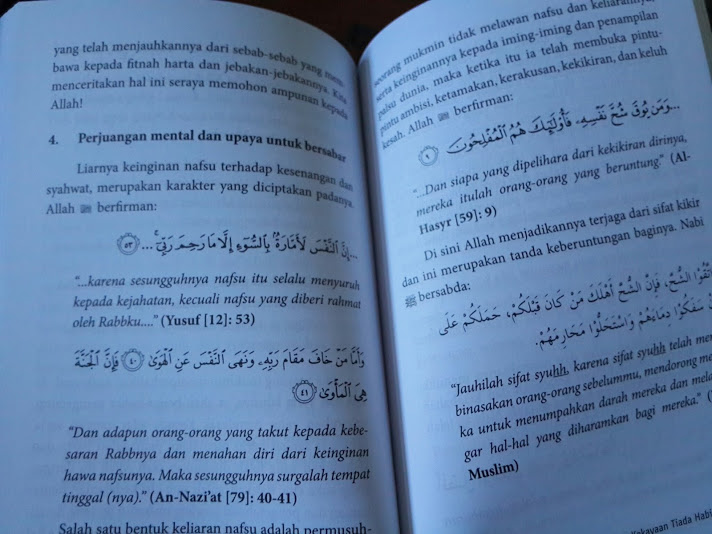 yang telah menjauhkannya dari sebab-sebab yang mem-
bawa kepada fitnah harta dan jebakan-jebakannya. Kita
menceritakan hal ini seraya memohon ampunan kepada
Allah!
4. Perjuangan mental dan upaya untuk bersabar
Liarnya keinginan nafsu terhadap kesenangan dan
syahwat, merupakan karakter yang diciptakan padanya.
Allah ﷻ berfirman:
...إِنَّ النَّفْسَ لَأَمَّارَةٌ بِالسُّوءِ إِلَّا مَا رَحِمَ رَبِّي ... ٥٣
"...karena sesungguhnya nafsu itu selalu menyuruh
kepada kejahatan, kecuali nafsu yang diberi rahmat
oleh Rabbku...." (Yusuf [12]: 53)
وَأَمَّا مَنْ خَافَ مَقَامَ رَبِّهِ وَنَهَى النَّفْسَ عَنِ الْهَوَىٰ ٤٠ فَإِنَّ الْجَنَّةَ
هِيَ الْمَأْوَىٰ ٤١
"Dan adapun orang-orang yang takut kepada kebe-
saran Rabbnya dan menahan diri dari keinginan
hawa nafsunya. Maka sesungguhnya surgalah tempat
tinggal (nya)." (An-Nazi'at [79]: 40-41)
Salah satu bentuk keliaran nafsu adalah permusuh-
seorang mukmin tidak melawan nafsu dan keliarannya,
serta keinginannya kepada iming-iming dan penampilan
palsu dunia, maka ketika itu ia telah membuka pintu-
pintu ambisi, ketamakan, kerakusan, kekikiran, dan keluh
kesah. Allah ﷻ berfirman:
...وَمَن يُوقَ شُحَّ نَفْسِهِ فَأُولَٰئِكَ هُمُ الْمُفْلِحُونَ ٩
"...Dan siapa yang dipelihara dari kekikiran dirinya,
mereka itulah orang-orang yang beruntung." (Al-
Hasyr [59]: 9)
Di sini Allah menjadikannya terjaga dari sifat kikir
dan ini merupakan tanda keberuntungan baginya. Nabi
ﷺ bersabda:
اتَّقُوا الشُّحَّ، فَإِنَّ الشُّحَّ أَهْلَكَ مَنْ كَانَ قَبْلَكُمْ، حَمَلَكُمْ عَلَى
سَفَكُوا دِمَاءَهُمْ وَاسْتَحَلُّوا مَحَارِمَهُمْ.
"Jauhilah sifat syuhh, karena sifat syuhh telah mem
binasakan orang-orang sebelummu, mendorong me
ka untuk menumpahkan darah mereka dan mela
gar hal-hal yang diharamkan bagi mereka."
Muslim)
Kekayaan Tiada Habi